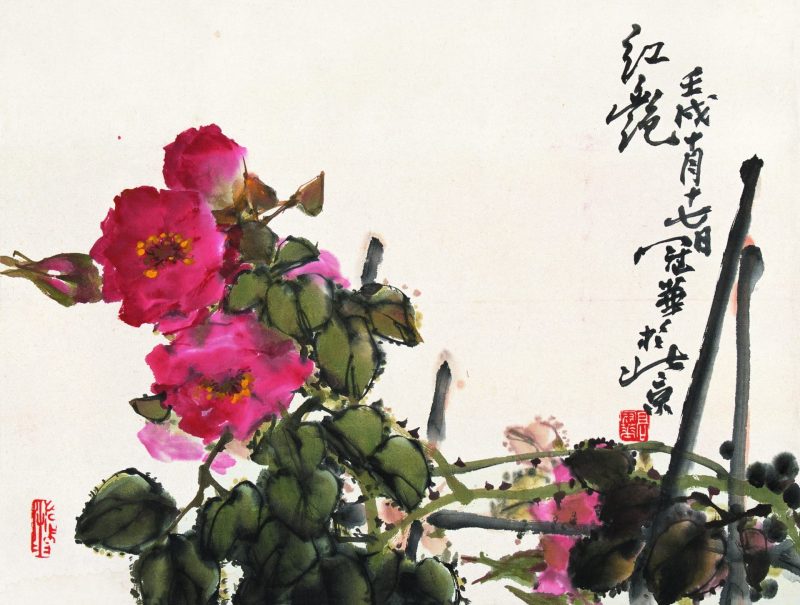 红艳
壬戌十月十七日冠華於北京